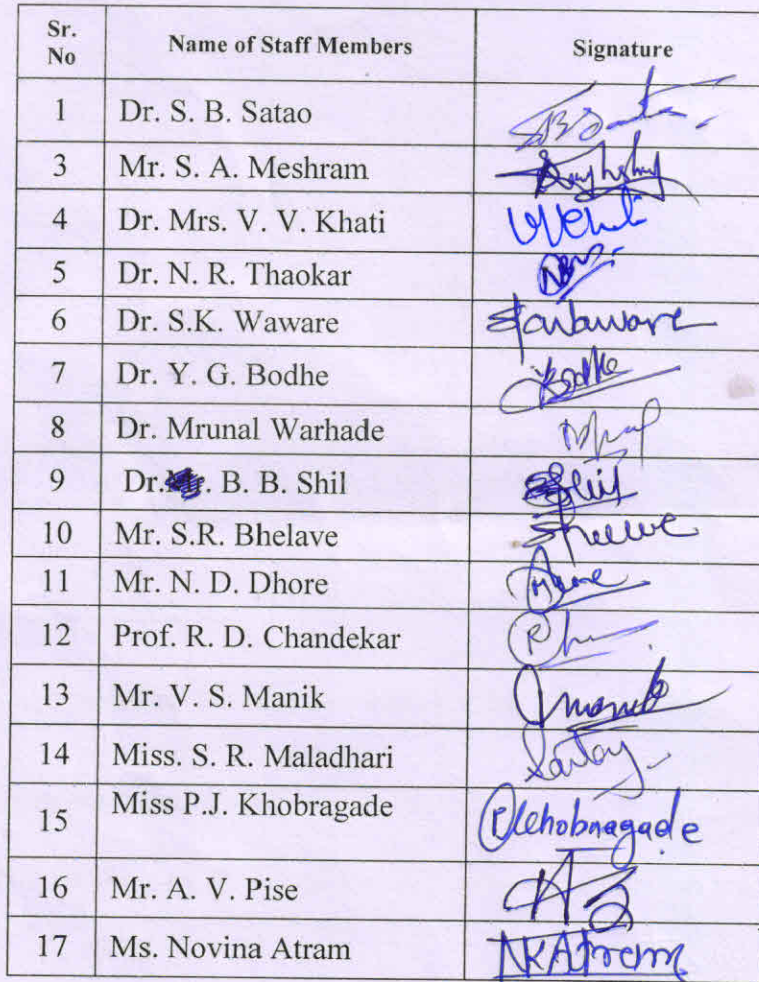 Sr. No Name of Staff Members Signature
1 Dr. S. B. Satao
3 Mr. S. A. Meshram
4 Dr. Mrs. V. V. Khati
5 Dr. N. R. Thaokar
6 Dr. S.K. Waware
7 Dr. Y. G. Bodhe Bodhe
8 Dr. Mrunal Warhade
9 Dr. B. B. Shil
10 Mr. S.R. Bhelave
11 Mr. N. D. Dhore
12 Prof. R. D. Chandekar
13 Mr. V. S. Manik Manik
14 Miss. S. R. Maladhari
15 Miss P.J. Khobragade PKhobragade
16 Mr. A. V. Pise
17 Ms. Novina Atram NKAtram